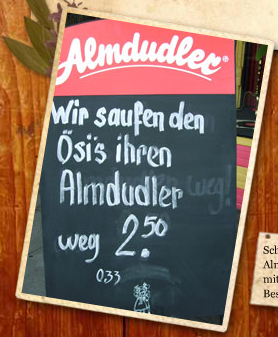 Almdudler®
Wir saufen den
Ösi's ihren
Almdudler
weg 2.50
0,33
Sch
Alm
mit
Bes